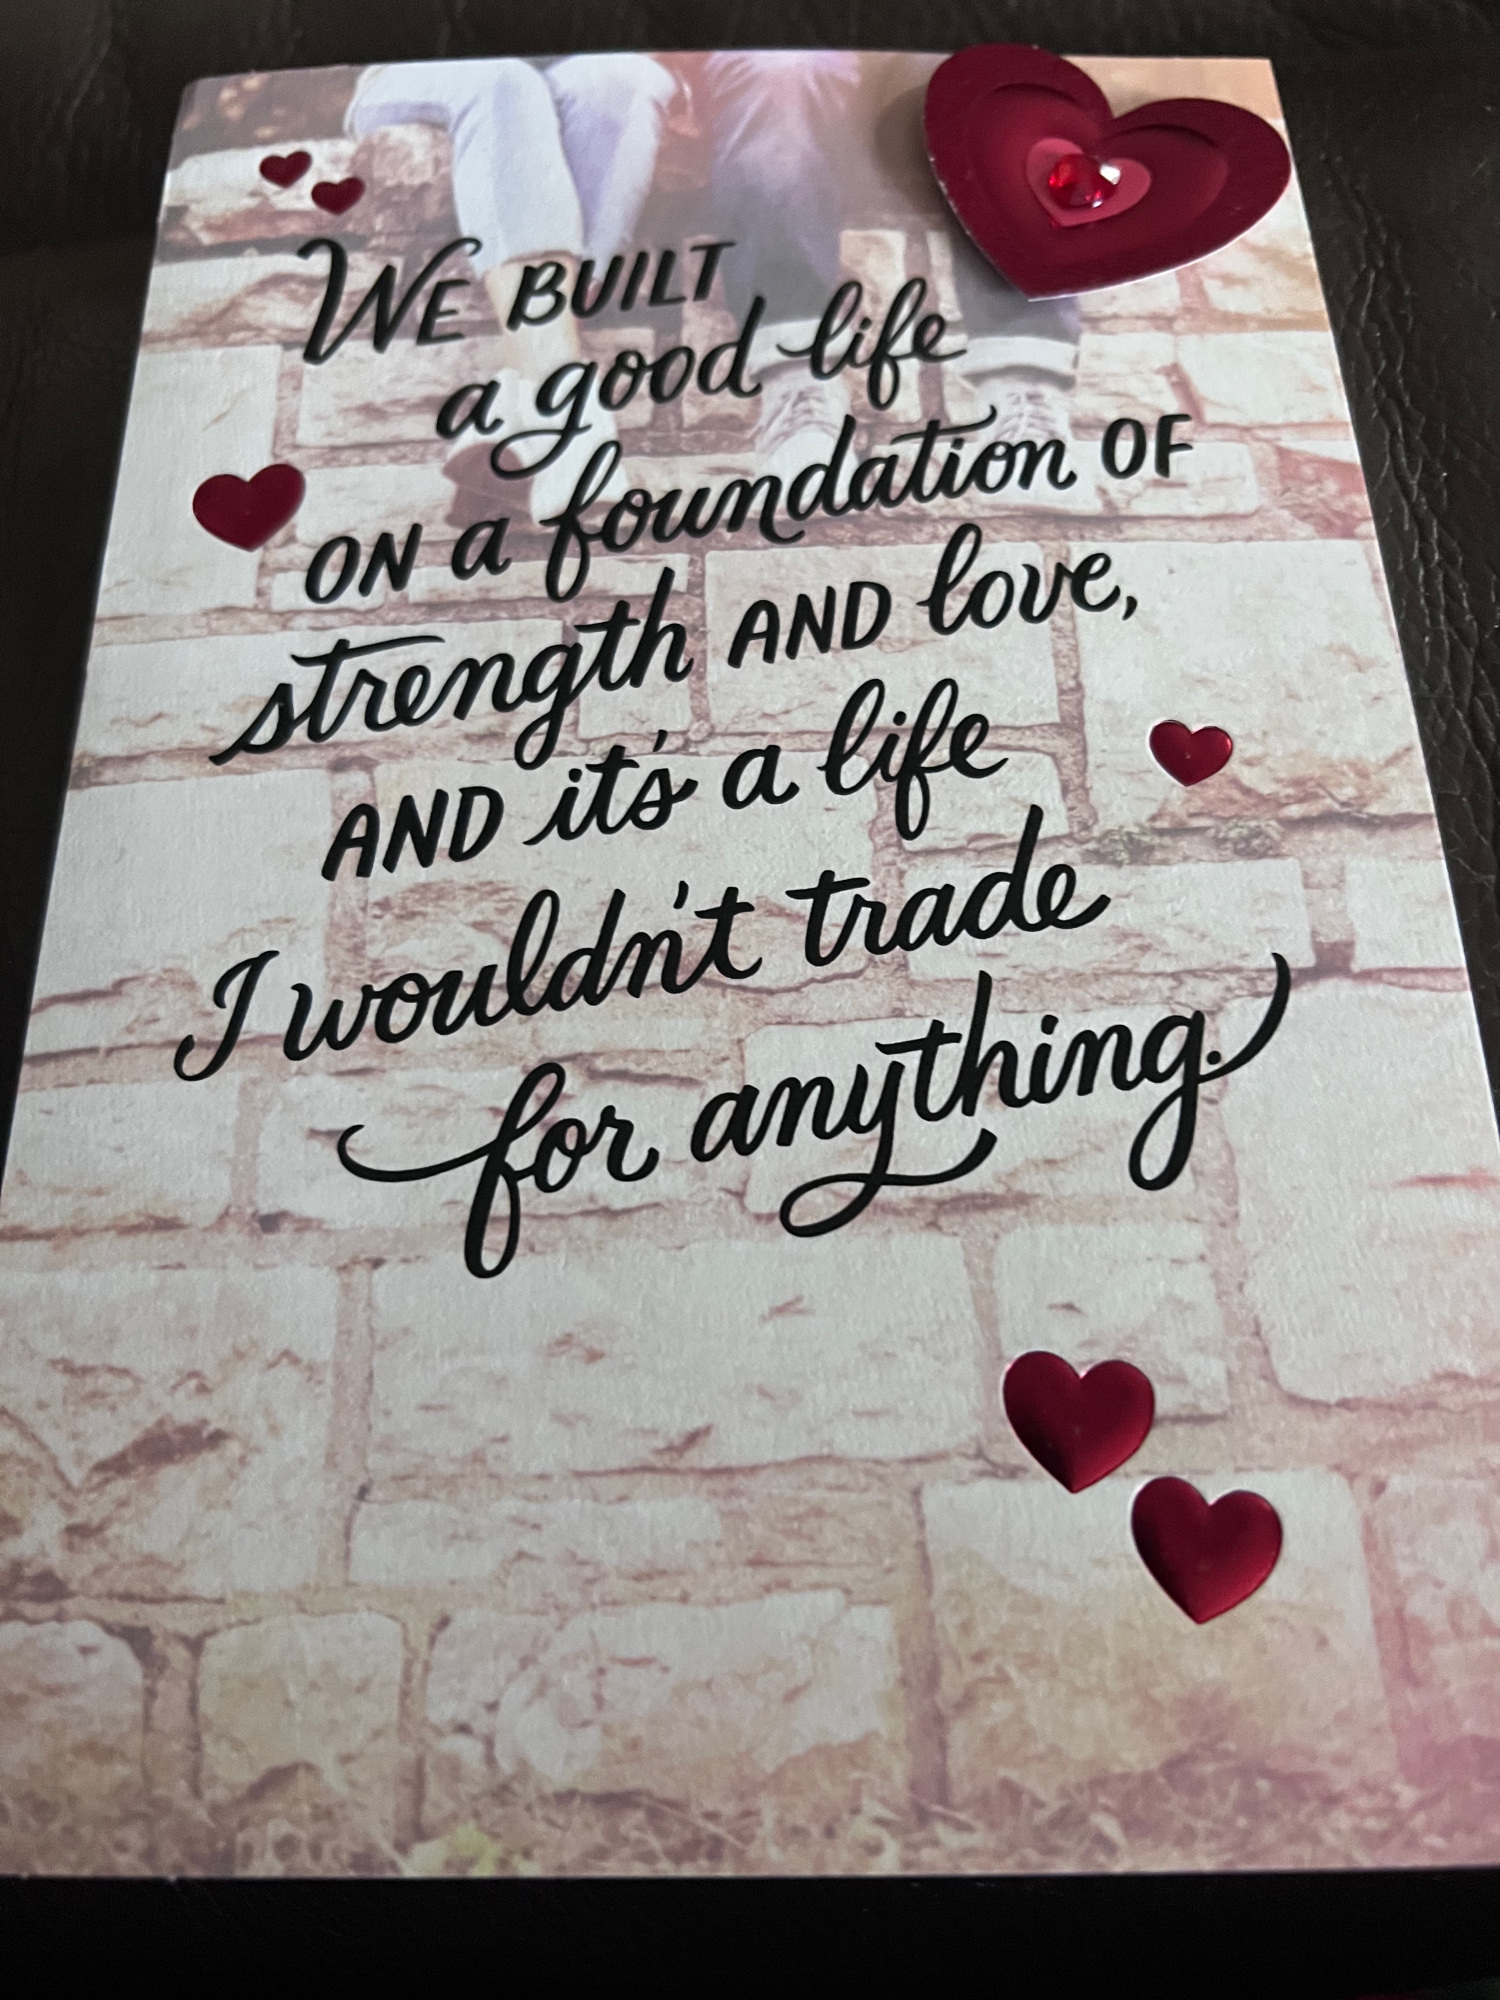 WE BUILT
a good life
ON a foundation OF
strength AND love,
AND it's a life
I wouldn't trade
for anything.